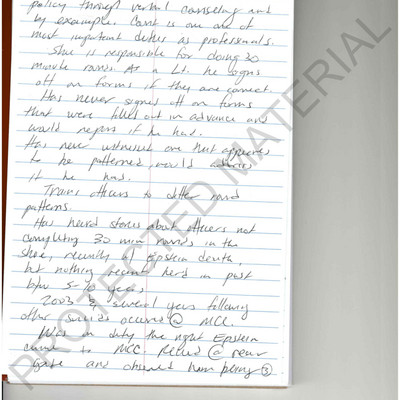 policy through verbal counseling and
by example. Count is one one of
most important duties as professionals.
She is responsible for doing 30
minute rounds. As a Lt. he signs
off on forms if they are correct.
Has never signed off on forms
that were filled out in advance and
would report if he had.
Has never witnessed one that appeared
to be patterned, would address
if he had.
Trains officers to differ round
patterns.
Has heard stories about officers not
completing 30 min rounds in the
shoe, recently of Epstein death,
but nothing recent heard in past
b/w 5-10 years.
2003 & several years following
other suicids occured @ MCC.
Was on duty the night Epstein
came to MCC. Recied @ rear
gate and observed him being 3
PROTECTED MATERIAL